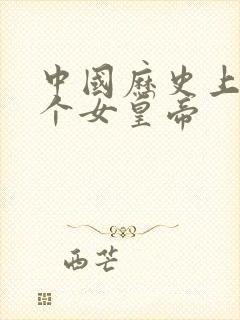 中國歷史上
个女皇帝
西芒